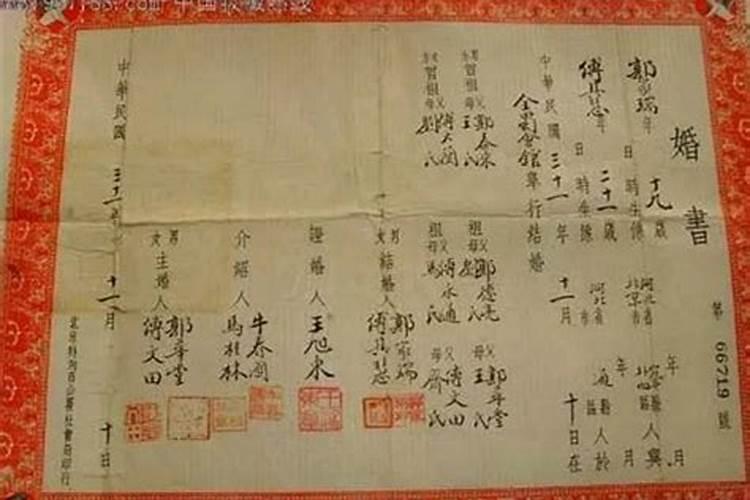 婚書
第 66719 號
郭家瑞 年 月 日 時生係 十九歲 河北省北京市 縣區人與
傅其慧 年 月 日 時生係 二十一歲 河北省 市 通縣區人於
中華民國 三十一年 十一月 十日在
全蜀會館 舉行結婚
男 曾祖父 郭泰來 母 王氏 祖父 郭德亮 母 氏 父 郭華堂 母 王氏
女 曾祖父 傅文蘭 母 劉氏 祖父 傅永通 母 馬氏 父 傅文田 母 齊氏
男女結婚人 郭家瑞 傅其慧
證婚人 王旭東
介紹人 牛春圃 馬桂林
男女主婚人 郭華堂 傅文田
中華民國 三十一年 十一月 十日